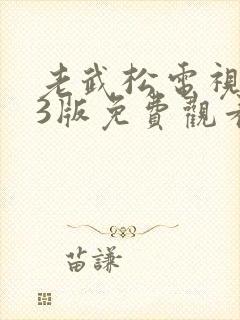 老武松電視
3版免費觀看
苗謙